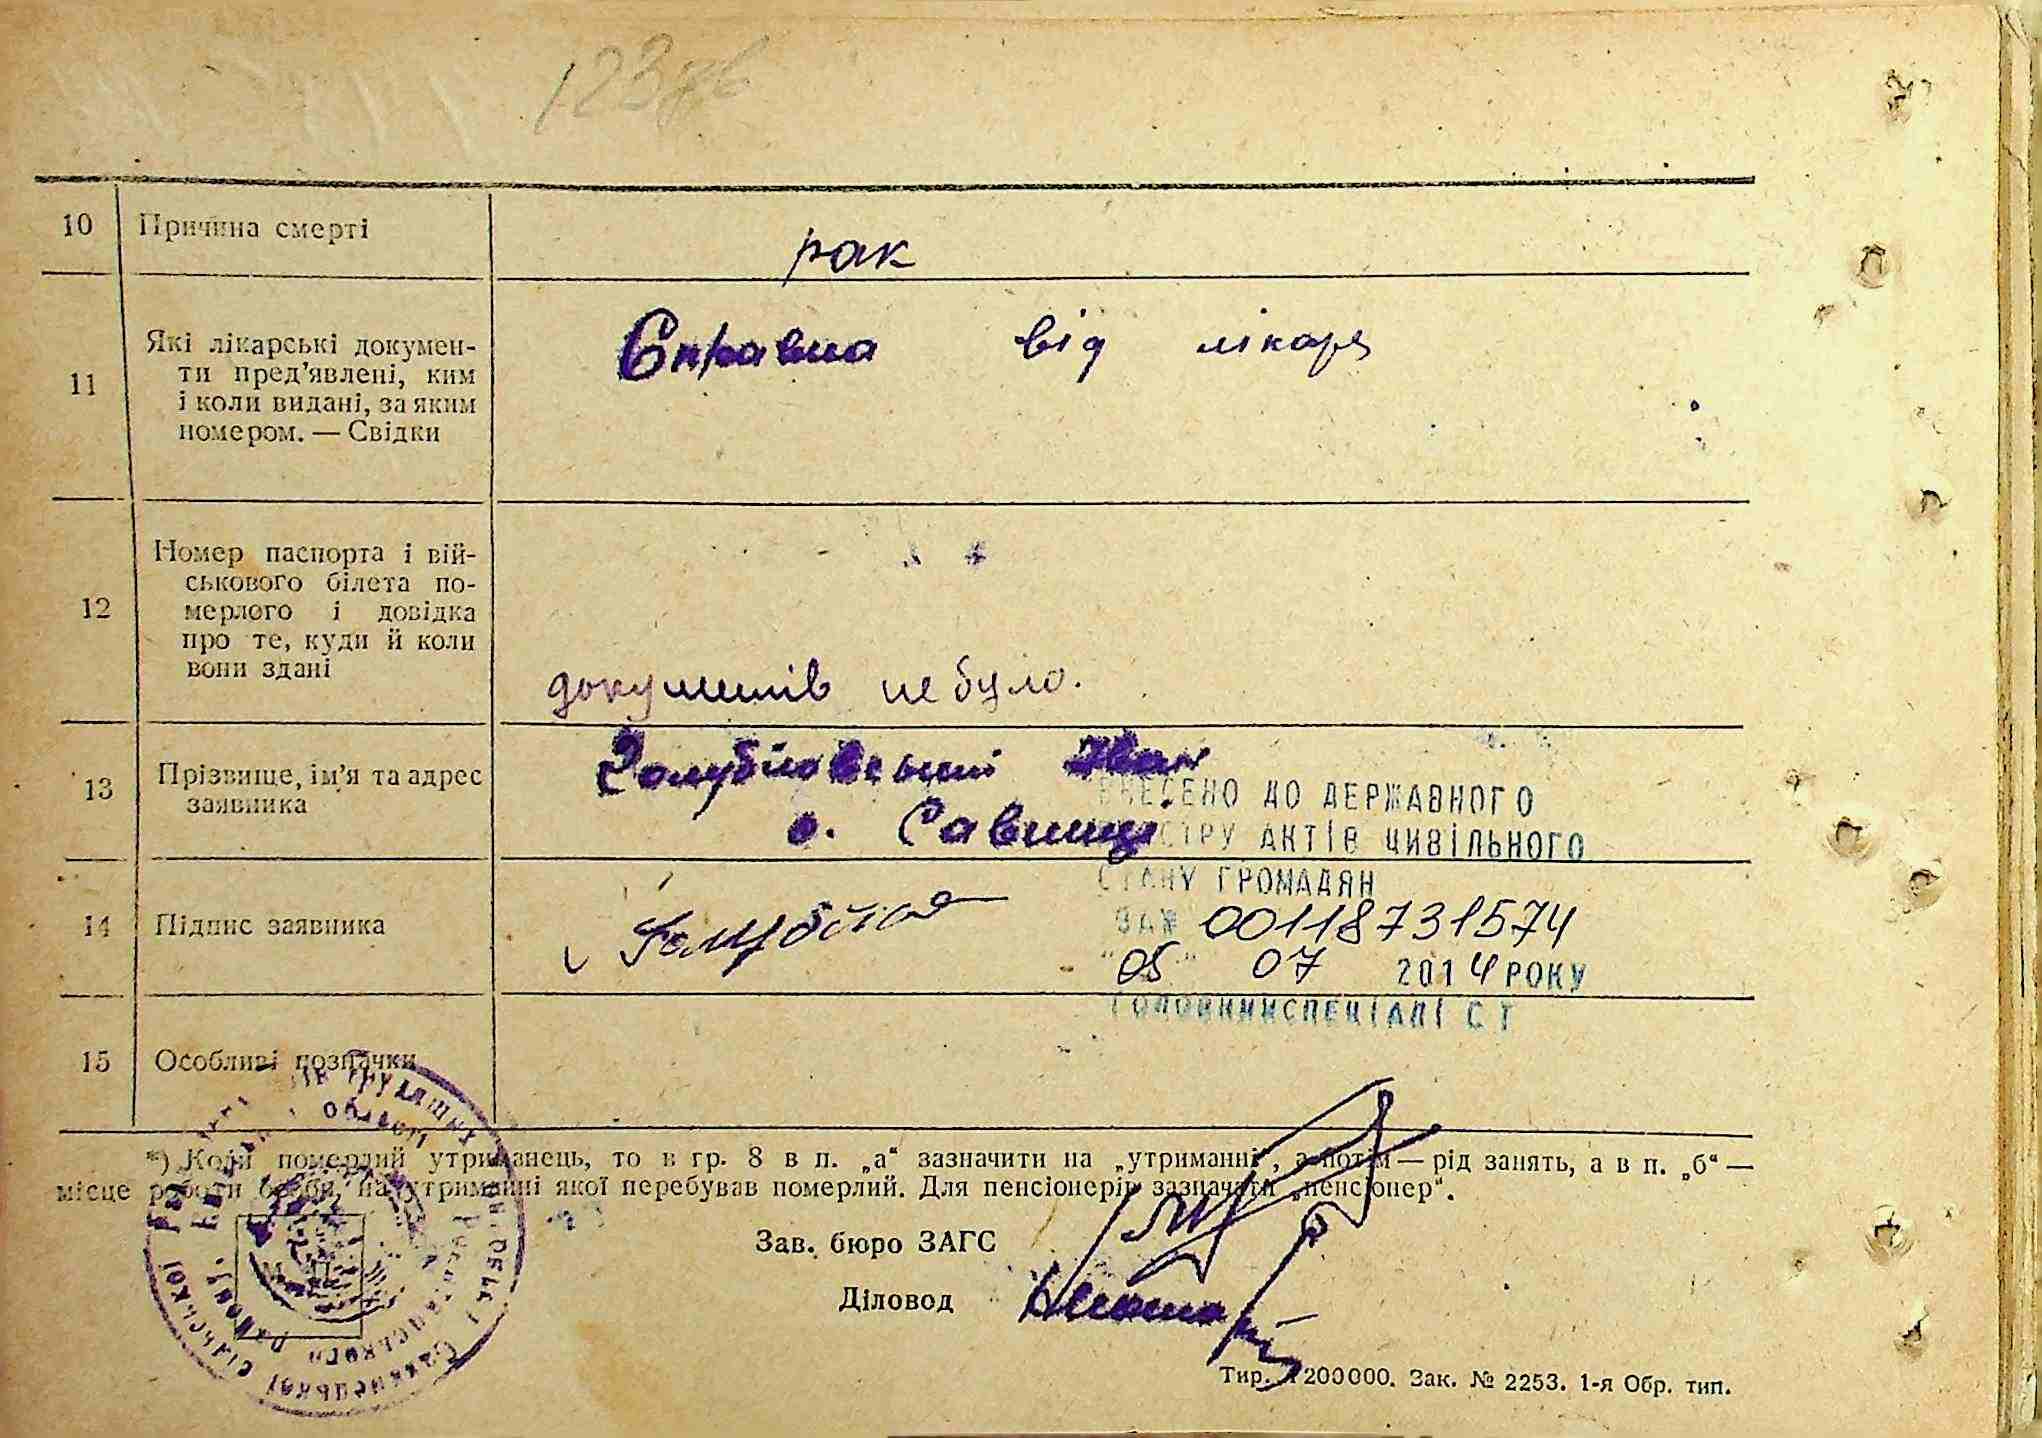 12376
10 Причина смерті
рак
11 Які лікарські докумен-
ти пред’явлені, ким
і коли видані, за яким
номером. — Свідки
Справка від лікаря
12 Номер паспорта і вій-
ськового білета по-
мерлого і довідка
про те, куди й коли
вони здані
документів не було.
13 Прізвище, ім’я та адрес
заявника
Голубіловський Іван
с. Савинці
ВНЕСЕНО ДО ДЕРЖАВНОГО
РЕЄСТРУ АКТІВ ЦИВІЛЬНОГО
СТАНУ ГРОМАДЯН
ЗА № 00118731574
"05" 07 2014 РОКУ
ГОЛОВНИЙ СПЕЦІАЛІСТ
14 Підпис заявника
15 Особливі позначки
*) Коли померлий утриманець, то в гр. 8 в п. „а“ зазначити на „утриманні“, а потім — рід занять, а в п. „б“ —
місце роботи особи, на утриманні якої перебував померлий. Для пенсіонерів зазначати „пенсіонер“.
Зав. бюро ЗАГС
Діловод
Тир. 1200000. Зак. № 2253. 1-я Обр. тип.